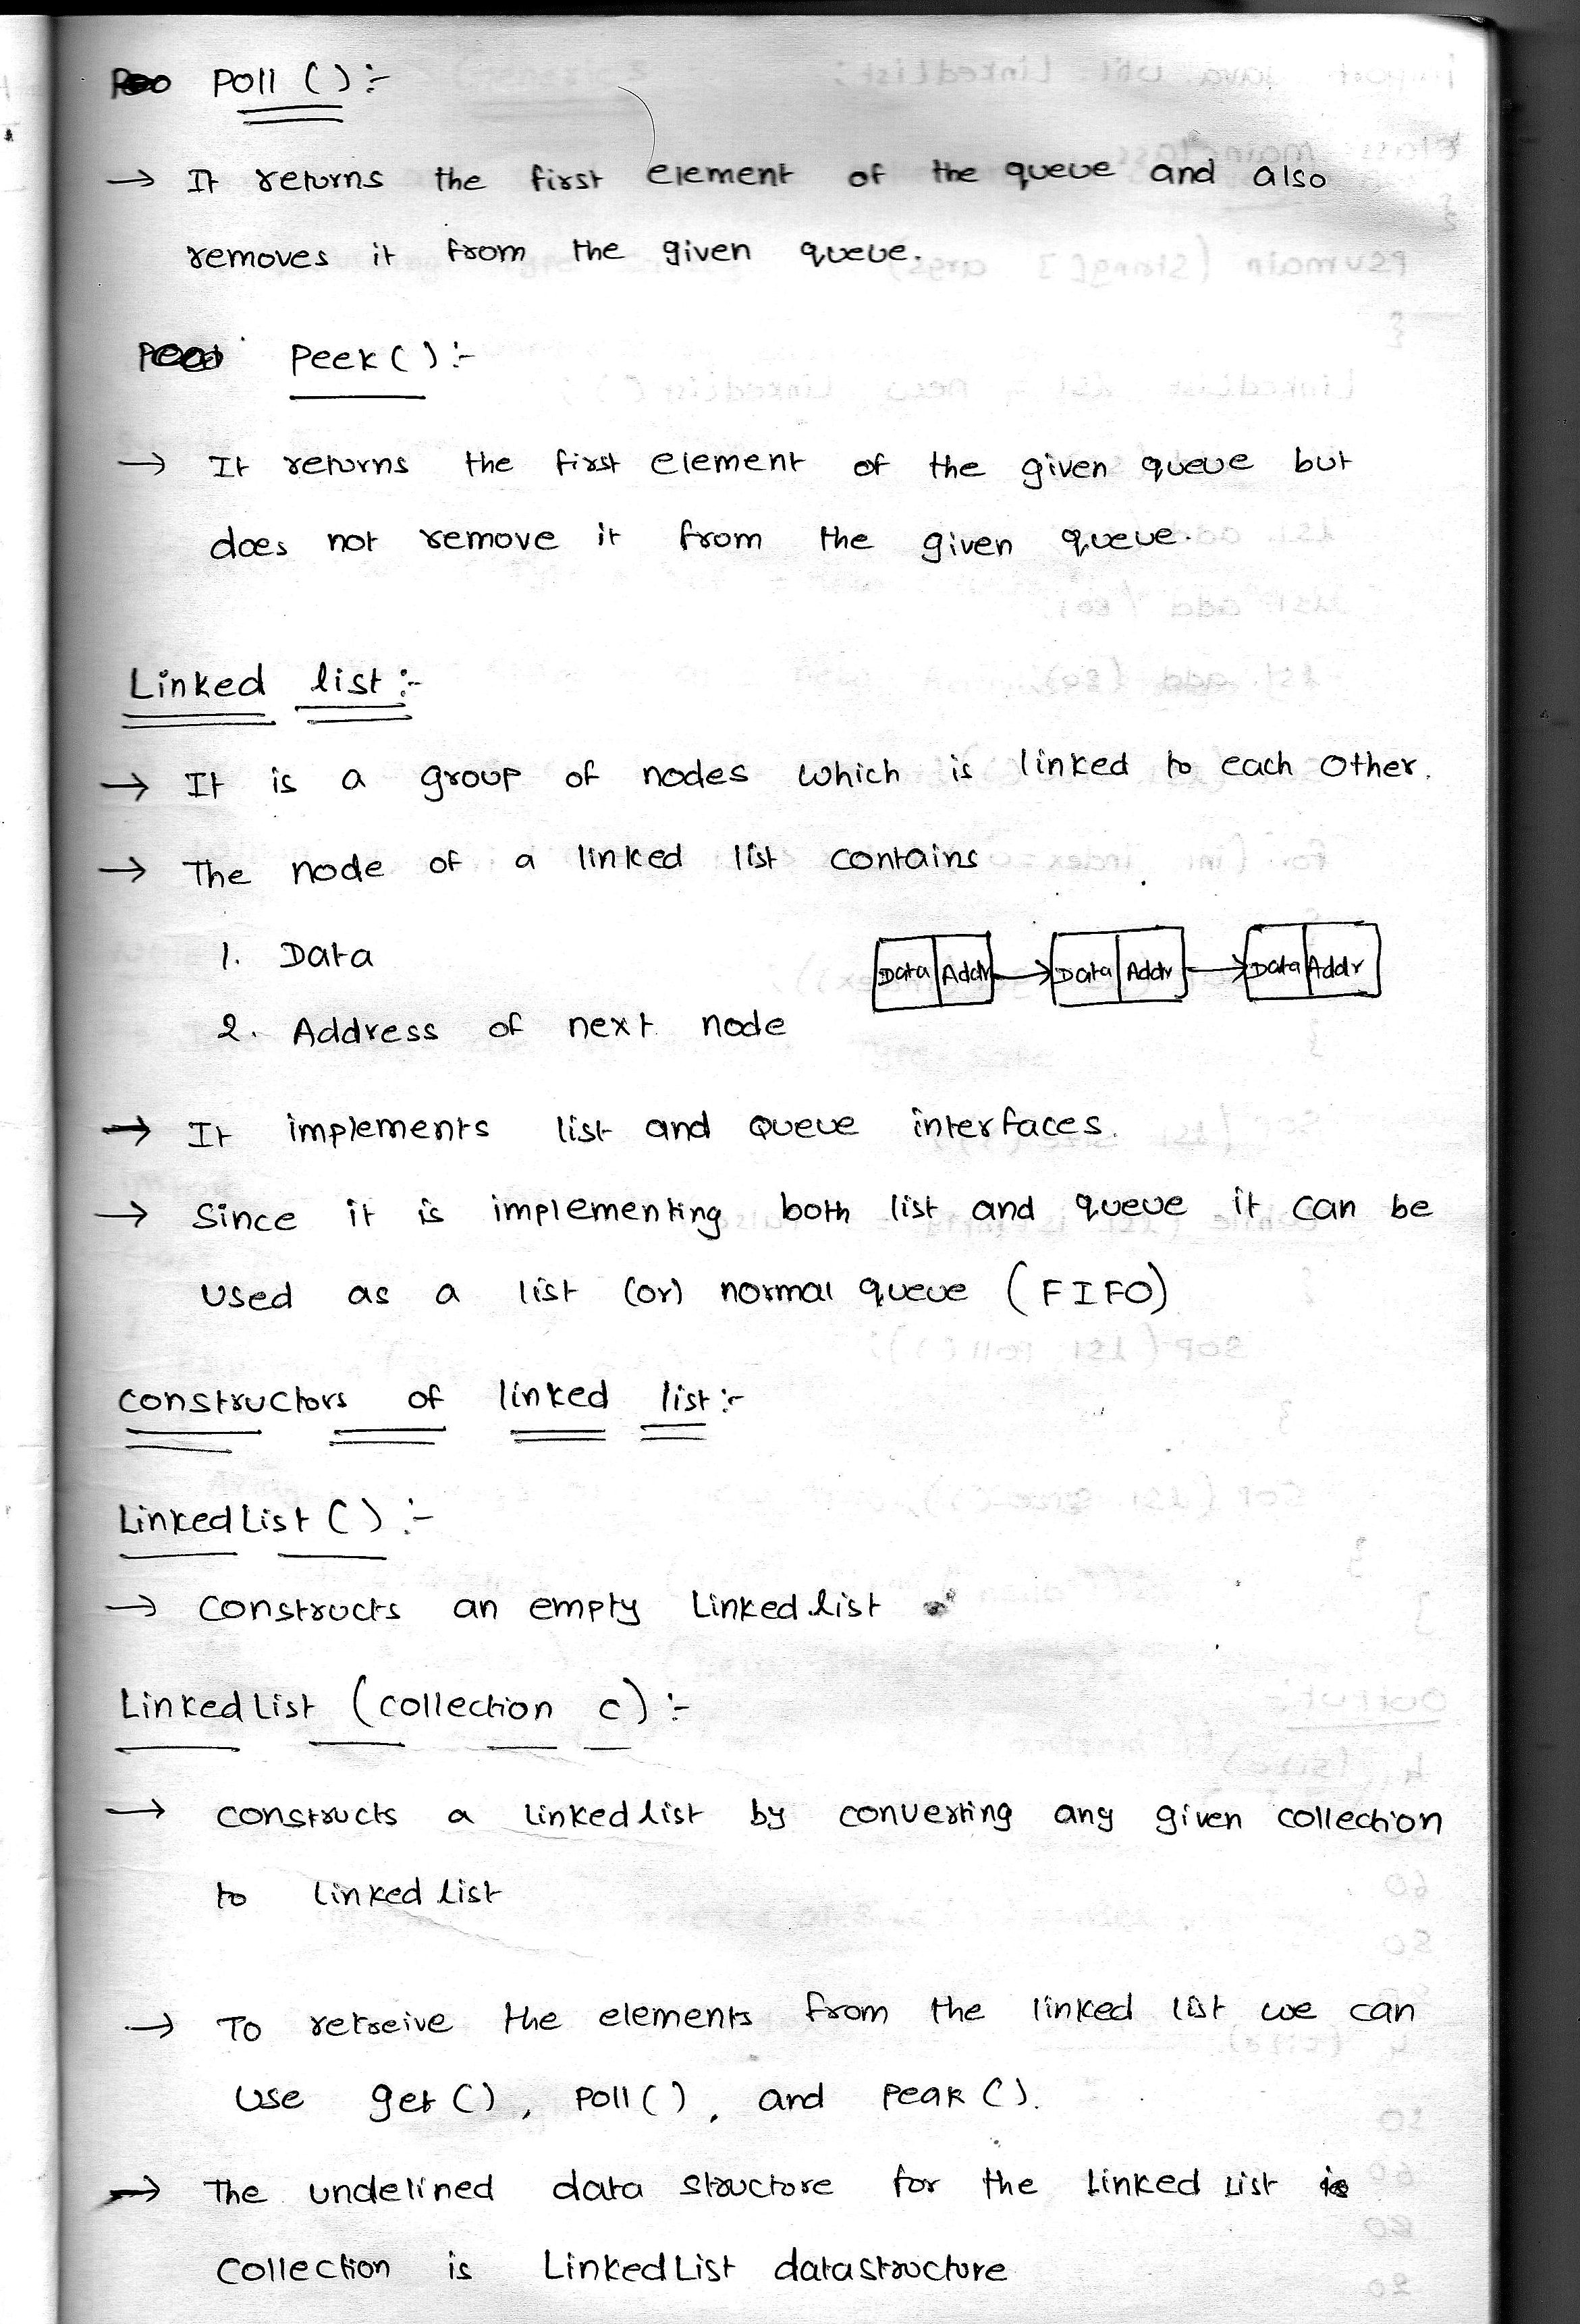 Poll () :-
→ It returns the first element of the queue and also
removes it from the given queue.
Peek ( ) :-
→ It returns the first element of the given queue but
does not remove it from the given queue.
Linked list :-
→ It is a group of nodes which is linked to each other.
→ The node of a linked list contains
1. Data
Data Addr → Data Addr → Data Addr
2. Address of next node
→ It implements list and Queue interfaces.
→ Since it is implementing both list and queue it can be
used as a list (or) normal queue (FIFO)
constructors of linked list :-
Linked List () :-
→ constructs an empty Linked list
Linked List (collection c) :-
→ constructs a linked list by converting any given collection
to linked list
→ To retreive the elements from the linked list we can
use get (), poll (), and peak ().
→ The undelined data structure for the Linked List
collection is Linked List datastructure